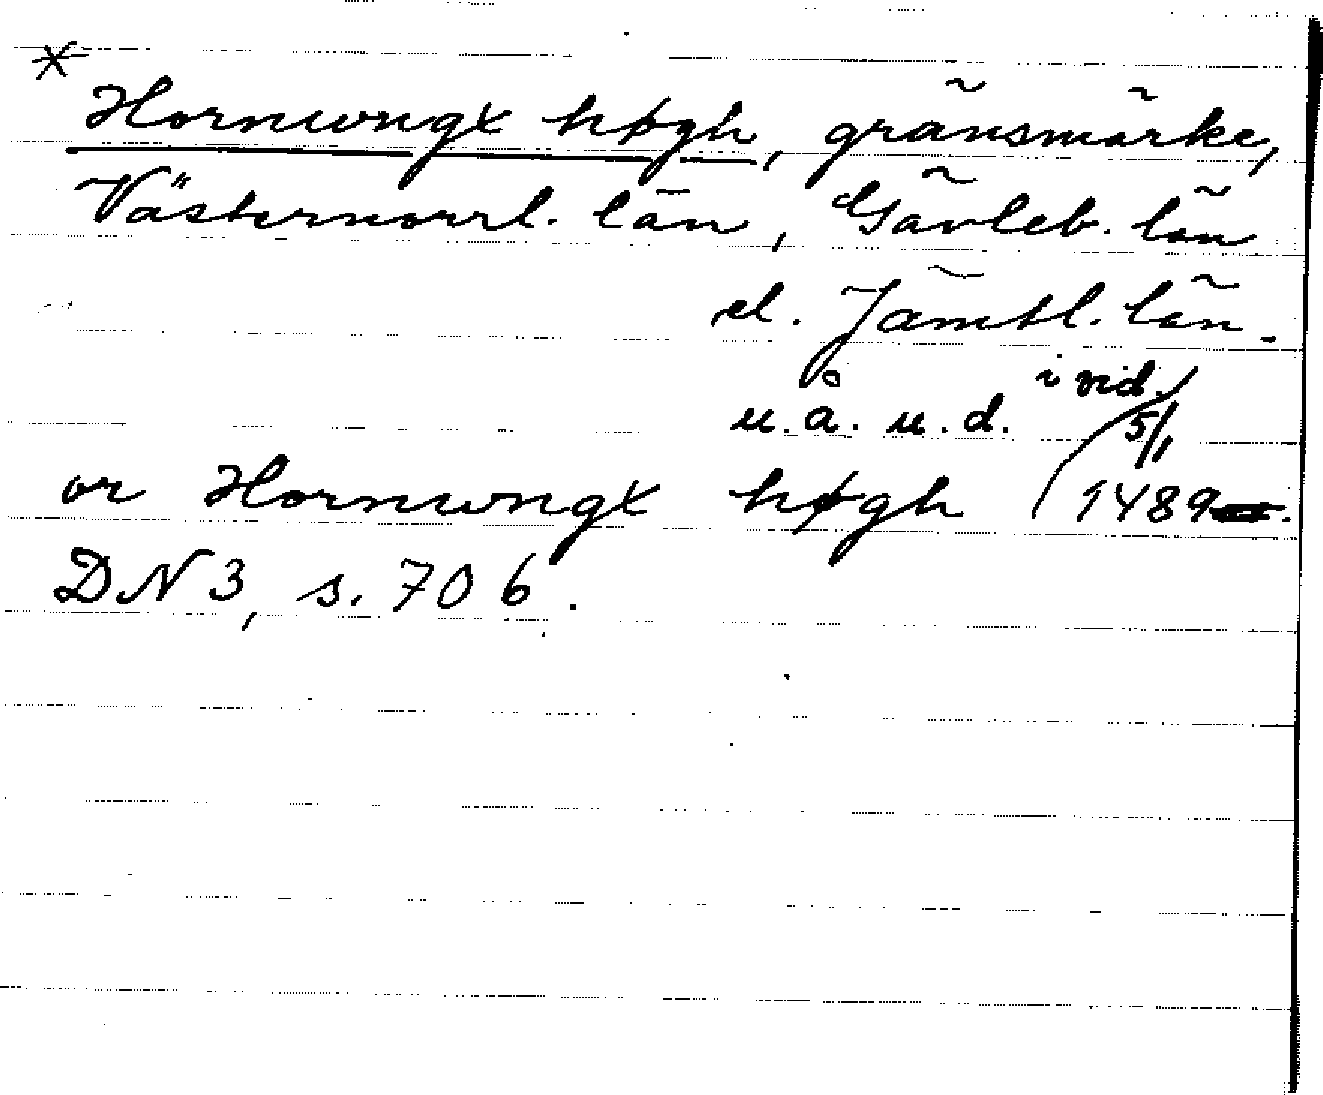 *
Hornwngx høgh, gränsmärke,
Västernorrl. län, Gävleb. län
el. Jämtl. län.
u.å. u.d. i vid. 5/1
or Hornwngx høgh 1489.
DN 3, s. 706.